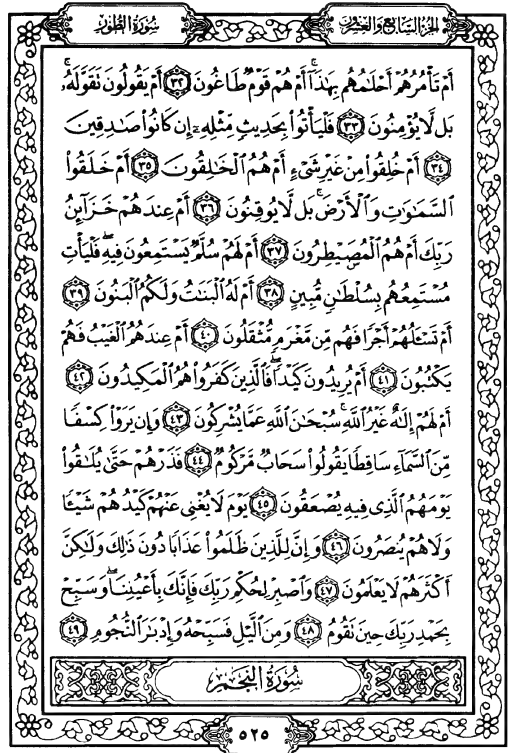 سُورَةُ الطُّورِ
الجُزءُ السَّابِعُ وَالعِشْرُونَ
أَمۡ تَأۡمُرُهُمۡ أَحۡلَٰمُهُم بِهَٰذَآۚ أَمۡ هُمۡ قَوۡمٞ طَاغُونَ ٣٢ أَمۡ يَقُولُونَ تَقَوَّلَهُۥۚ
بَل لَّا يُؤۡمِنُونَ ٣٣ فَلۡيَأۡتُواْ بِحَدِيثٖ مِّثۡلِهِۦٓ إِن كَانُواْ صَٰدِقِينَ
٣٤ أَمۡ خُلِقُواْ مِنۡ غَيۡرِ شَيۡءٍ أَمۡ هُمُ ٱلۡخَٰلِقُونَ ٣٥ أَمۡ خَلَقُواْ
ٱلسَّمَٰوَٰتِ وَٱلۡأَرۡضَۚ بَل لَّا يُوقِنُونَ ٣٦ أَمۡ عِندَهُمۡ خَزَآئِنُ
رَبِّكَ أَمۡ هُمُ ٱلۡمُصَۜيۡطِرُونَ ٣٧ أَمۡ لَهُمۡ سُلَّمٞ يَسۡتَمِعُونَ فِيهِۖ فَلۡيَأۡتِ
مُسۡتَمِعُهُم بِسُلۡطَٰنٖ مُّبِينٍ ٣٨ أَمۡ لَهُ ٱلۡبَنَٰتُ وَلَكُمُ ٱلۡبَنُونَ ٣٩
أَمۡ تَسۡـَٔلُهُمۡ أَجۡرٗا فَهُم مِّن مَّغۡرَمٖ مُّثۡقَلُونَ ٤٠ أَمۡ عِندَهُمُ ٱلۡغَيۡبُ فَهُمۡ
يَكۡتُبُونَ ٤١ أَمۡ يُرِيدُونَ كَيۡدٗاۖ فَٱلَّذِينَ كَفَرُواْ هُمُ ٱلۡمَكِيدُونَ ٤٢
أَمۡ لَهُمۡ إِلَٰهٌ غَيۡرُ ٱللَّهِۚ سُبۡحَٰنَ ٱللَّهِ عَمَّا يُشۡرِكُونَ ٤٣ وَإِن يَرَوۡاْ كِسۡفٗا
مِّنَ ٱلسَّمَآءِ سَاقِطٗا يَقُولُواْ سَحَابٞ مَّرۡكُومٞ ٤٤ فَذَرۡهُمۡ حَتَّىٰ يُلَٰقُواْ
يَوۡمَهُمُ ٱلَّذِي فِيهِ يُصۡعَقُونَ ٤٥ يَوۡمَ لَا يُغۡنِي عَنۡهُمۡ كَيۡدُهُمۡ شَيۡـٔٗا
وَلَا هُمۡ يُنصَرُونَ ٤٦ وَإِنَّ لِلَّذِينَ ظَلَمُواْ عَذَابٗا دُونَ ذَٰلِكَ وَلَٰكِنَّ
أَكۡثَرَهُمۡ لَا يَعۡلَمُونَ ٤٧ وَٱصۡبِرۡ لِحُكۡمِ رَبِّكَ فَإِنَّكَ بِأَعۡيُنِنَاۖ وَسَبِّحۡ
بِحَمۡدِ رَبِّكَ حِينَ تَقُومُ ٤٨ وَمِنَ ٱلَّيۡلِ فَسَبِّحۡهُ وَإِدۡبَٰرَ ٱلنُّجُومِ ٤٩
سُورَةُ النَّجْمِ
٥٢٥